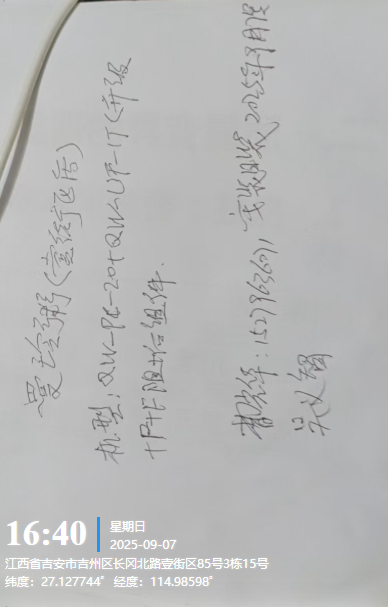 曼玲粥(壹街区店)
机型:QW-PE-20+QW-UF-1T(升级
+PP+F阻垢组件.
152796360
安装服装 2025年9月7日
16:40
星期日
2025-09-07
江西省吉安市吉州区长冈北路壹街区85号3栋15号
纬度:27.127744° 经度:114.98598°